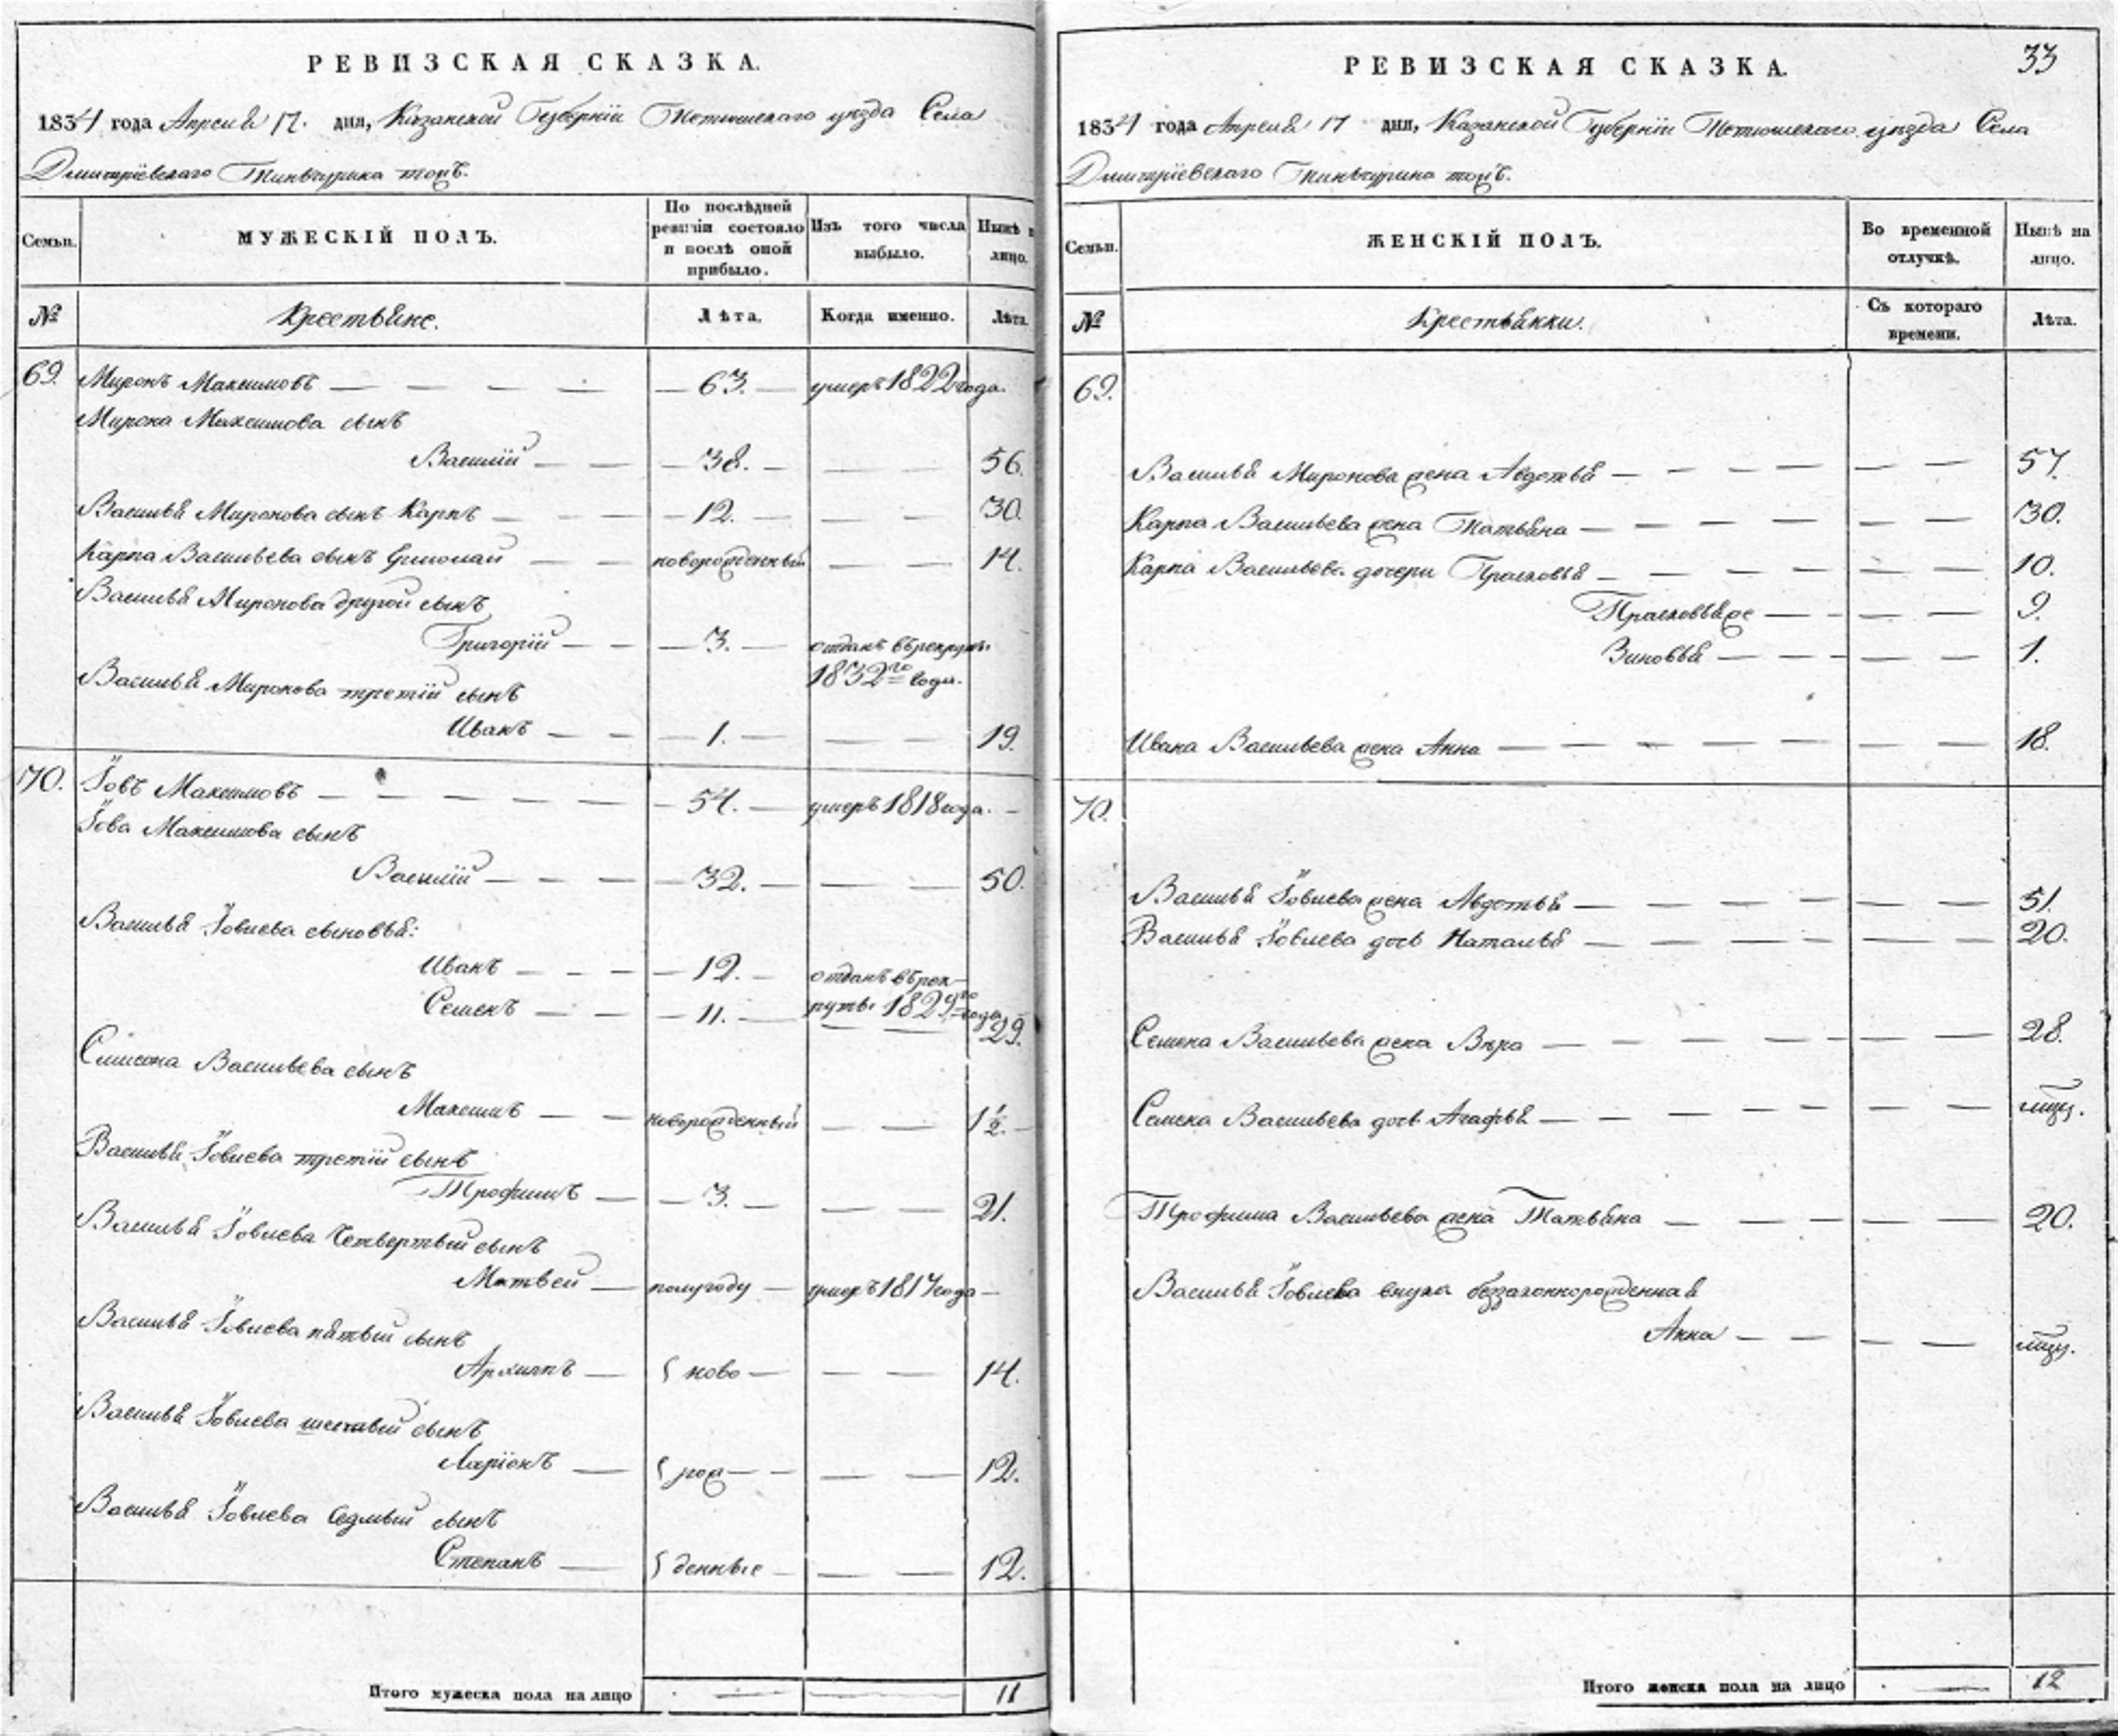 РЕВИЗСКАЯ СКАЗКА.
1834 года Апреля 17. дня, Казанской Губернїи Тетюшскаго уѣзда Села
Дмитрїевскаго тожъ.
Семьи.
МУЖЕСКІЙ ПОЛЪ.
По послѣдней ревизіи состояло и послѣ оной прибыло.
Изъ того числа выбыло.
Нынѣ на лицо.
№
Крестьяне.
Лѣта.
Когда именно.
Лѣта.
69. Миронъ Максимовъ — 63. — умеръ 1822 года.
Мирона Максимова сынъ
Василїй — 38. — 56.
Василья Миронова сынъ Карпъ — 12. — 30.
Карпа Васильева сынъ Ермолай — новорожденный — 14.
Василья Миронова другой сынъ
Григорїй — 3. — отданъ въ рекруты
1832го года.
Василья Миронова третїй сынъ
Иванъ — 1. — 19.
70. Їовъ Максимовъ — 54. — умеръ 1818 года. —
Їова Максимова сынъ
Василїй — 32. — 50.
Василья Їовлева сыновья:
Иванъ — 12. — отданъ въ рек-
Семенъ — 11. — руты 1829го года 29.
Симиона Васильева сынъ
Максимъ — новорожденный — 1½. —
Василья Їовлева третїй сынъ
Трофимъ — 3. — 21.
Василья Їовлева Четвертый сынъ
Матвей — полугоду — умеръ 1817 года —
Василья Їовлева пятый сынъ
Архипъ — ново — 14.
Василья Їовлева шестый сынъ
Ларїонъ — рож — 12.
Василья Їовлева Седмый сынъ
Степанъ — денные — 12.
Итого мужеска пола на лицо — 11
РЕВИЗСКАЯ СКАЗКА. 33
1834 года Апреля 17 дня, Казанской Губернїи Тетюшскаго уѣзда Села
Дмитрїевскаго тожъ.
Семьи.
ЖЕНСКІЙ ПОЛЪ.
Во временной отлучкѣ.
Нынѣ на лицо.
№
Крестьянки.
Съ котораго времени.
Лѣта.
69.
Василья Миронова жена Авдотья — 57.
Карпа Васильева жена Татьяна — 30.
Карпа Васильева дочери Прасковья — 10.
Прасковья же — 9.
Зиновья — 1.
Ивана Васильева жена Анна — 18.
70.
Василья Їовлева жена Авдотья — 51.
Василья Їовлева дочь Наталья — 20.
Семена Васильева жена Вѣра — 28.
Семена Васильева дочь Агафья —
Трофима Васильева жена Татьяна — 20.
Василья Їовлева внука беззаконнорожденная
Анна —
Итого женска пола на лицо — 12